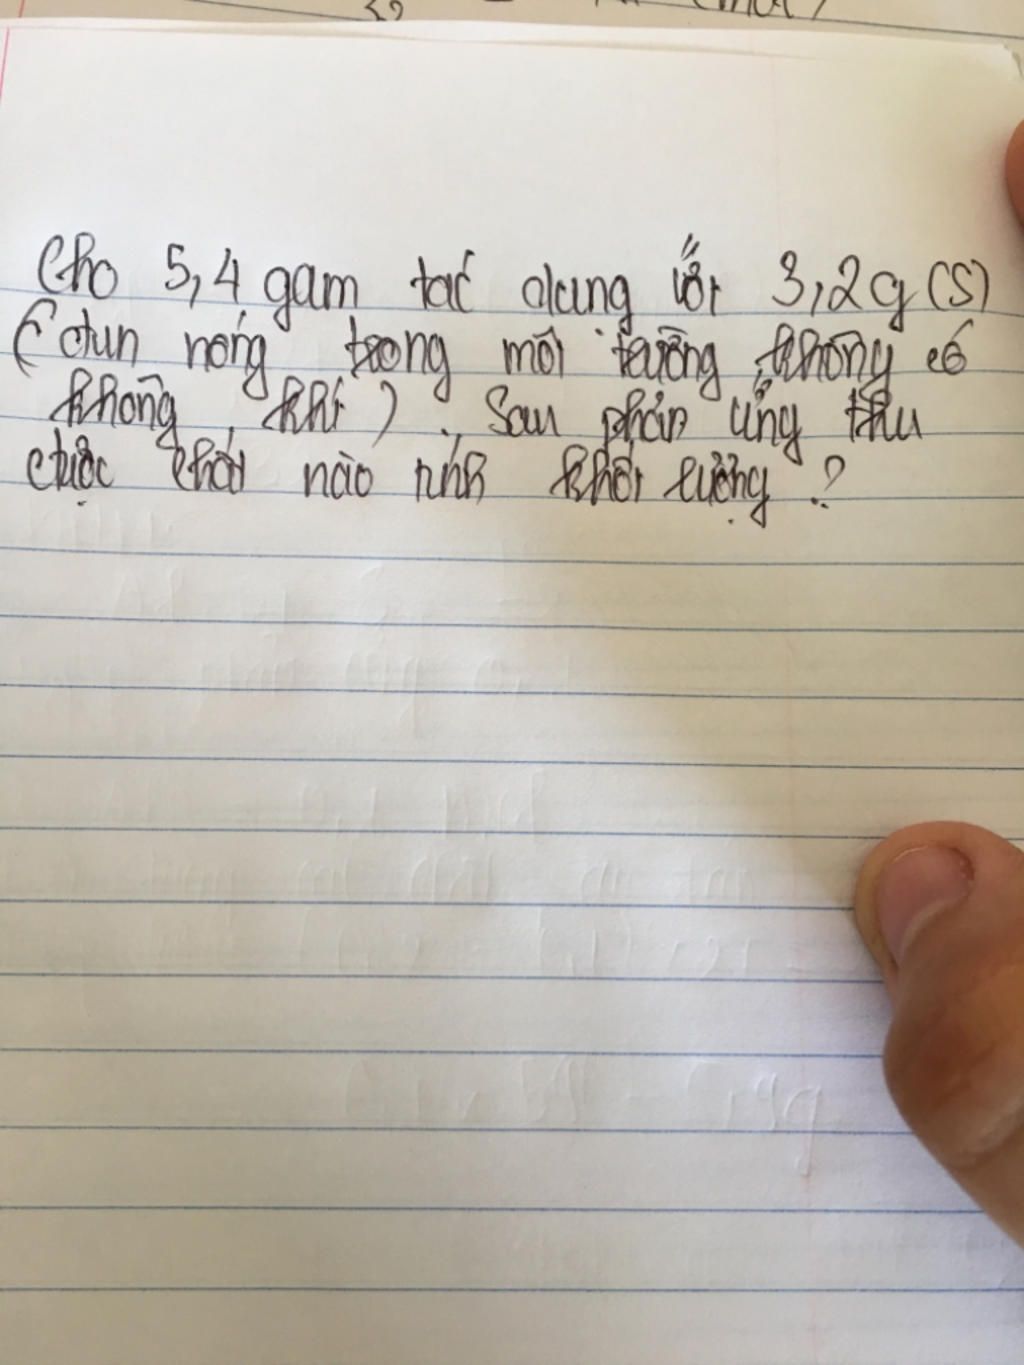 Cho 5,4 gam tać dụng với 3,2g (S)
(đun nóng trong môi trường không có
không khí). Sau phản ứng thu
được chất nào tính khối lượng ?